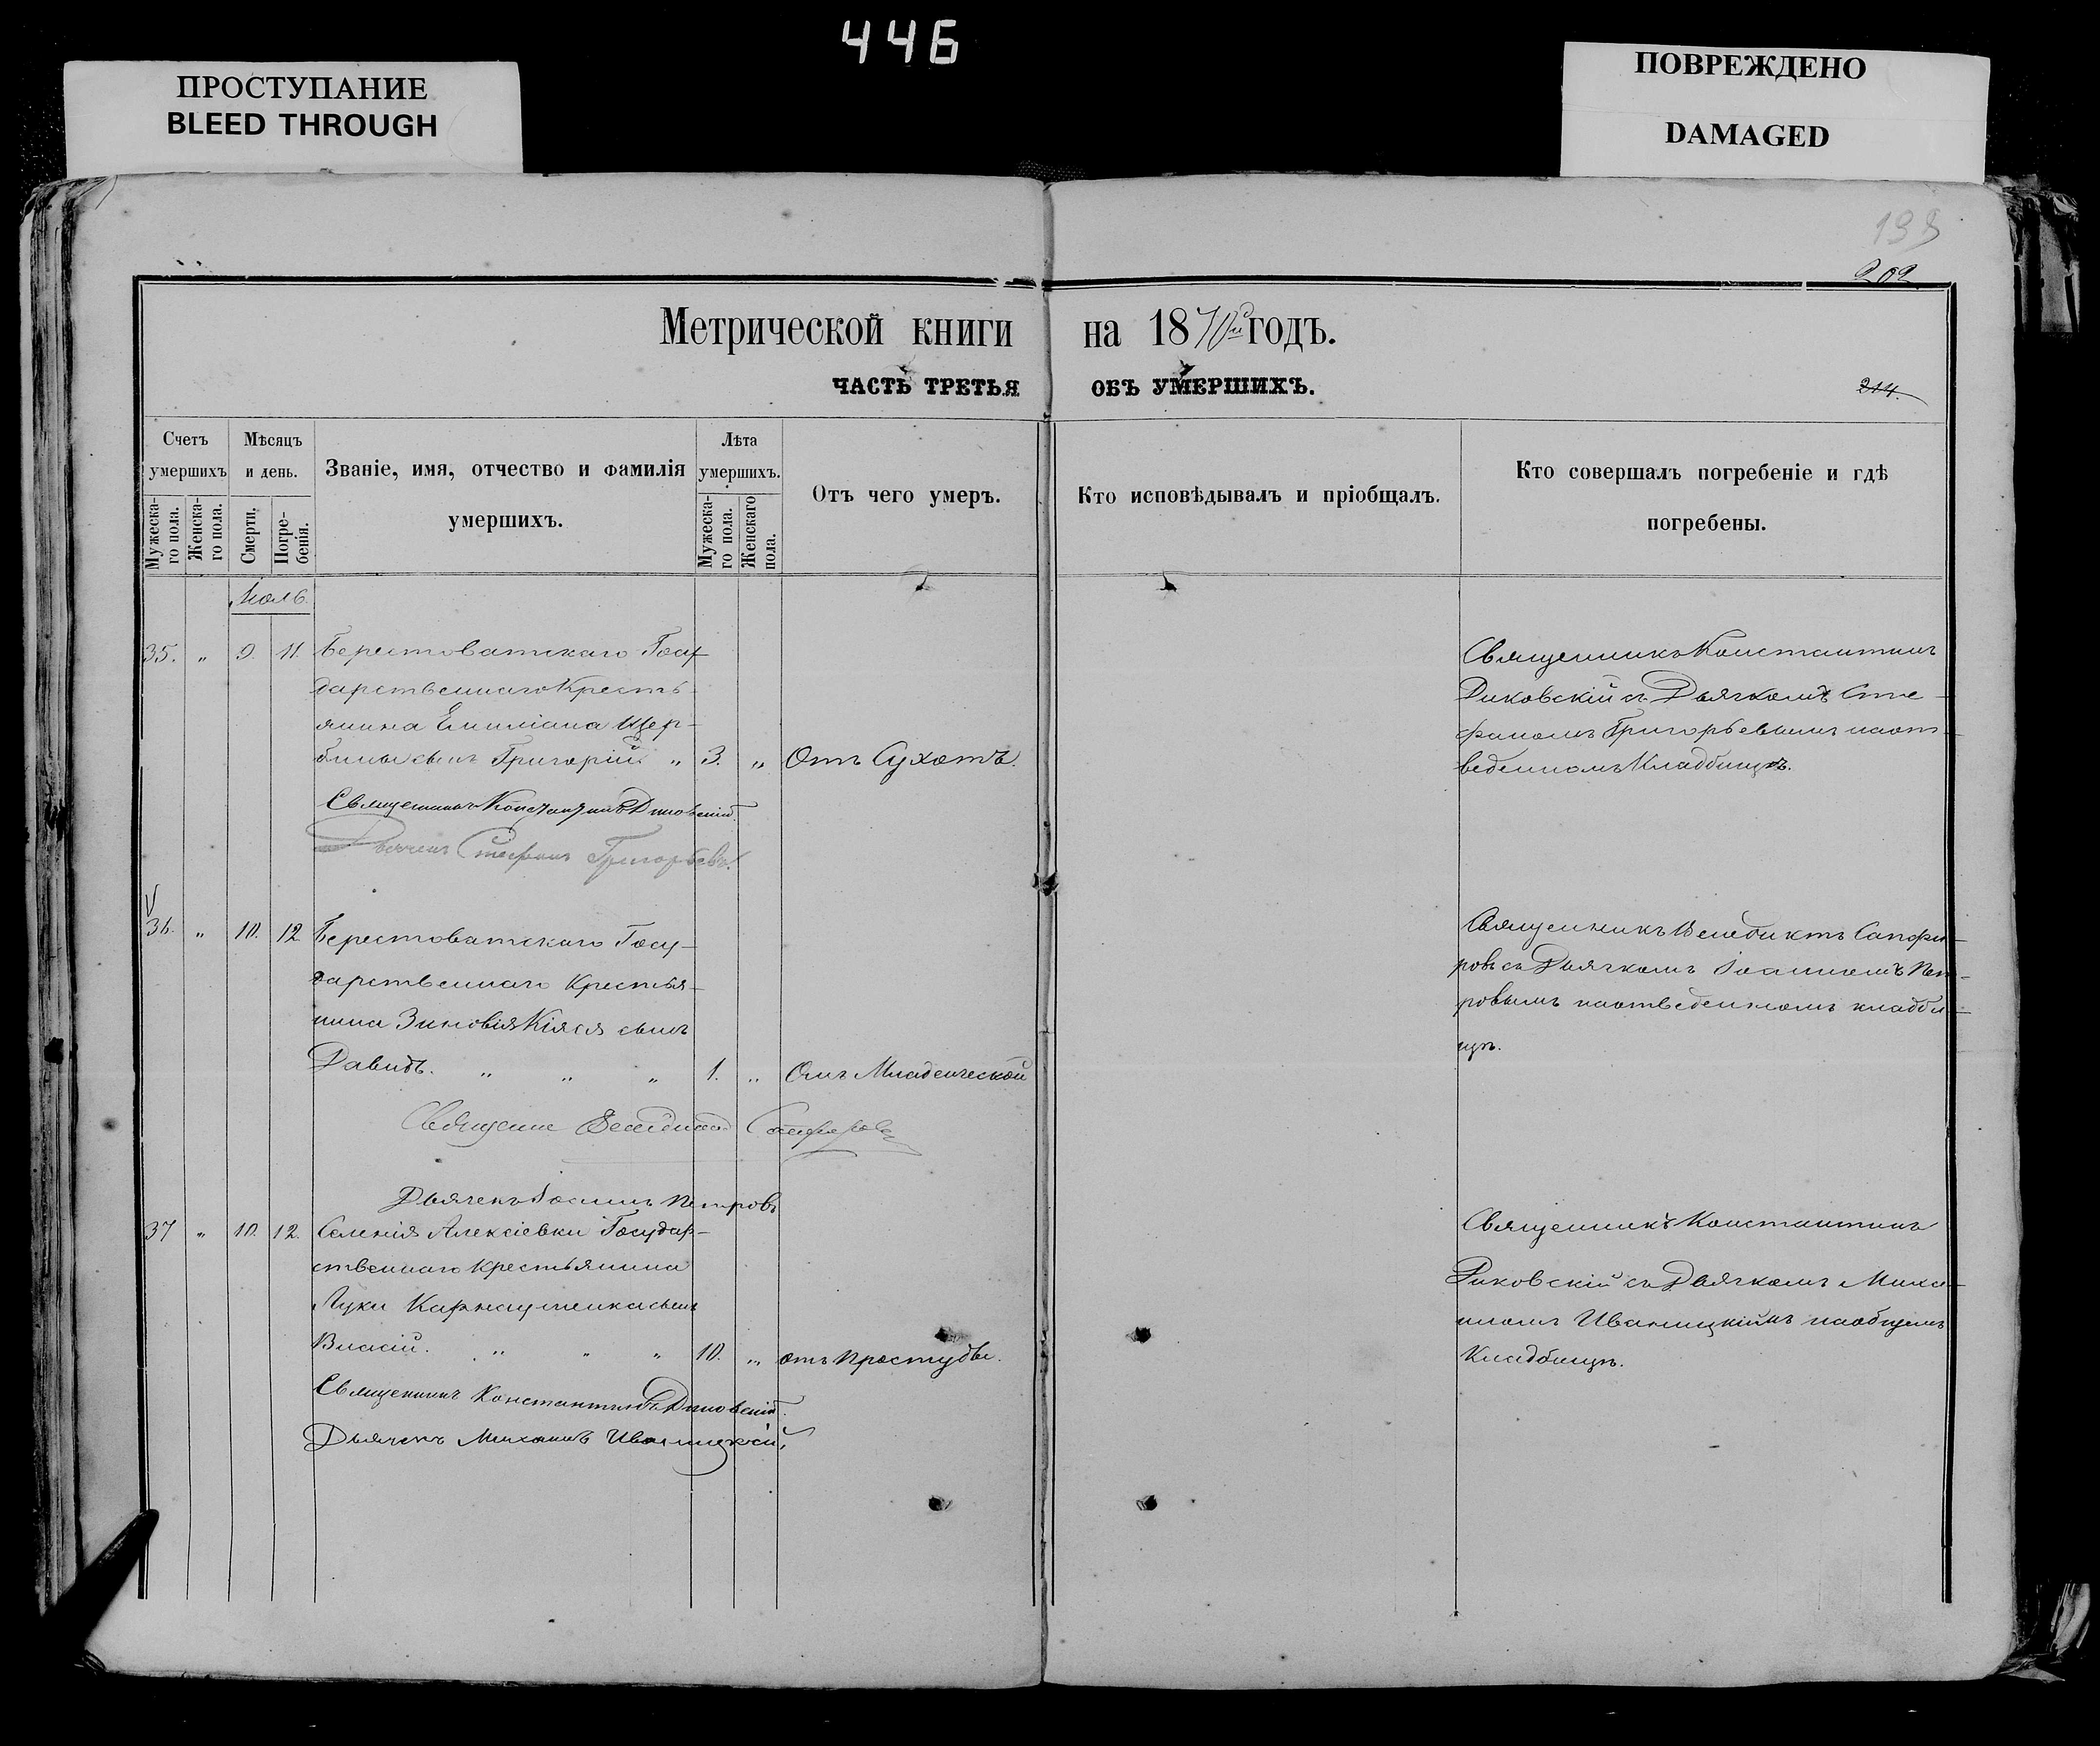 446
ПРОСТУПАНИЕ
BLEED THROUGH
ПОВРЕЖДЕНО
DAMAGED
198
202
Метрической книги на 1870й годъ.
ЧАСТЬ ТРЕТЬЯ ОБЪ УМЕРШИХЪ.
214.
Счетъ умершихъ
Мужеска-го пола.
Женска-го пола.
Мѣсяцъ и день.
Смерти.
Погре-бенія.
Званіе, имя, отчество и фамилія умершихъ.
Лѣта умершихъ.
Мужеска-го пола.
Женскаго пола.
Отъ чего умеръ.
Кто исповѣдывалъ и пріобщалъ.
Кто совершалъ погребеніе и гдѣ погребены.
Іюль
35. " 9. 11. Берестоватскаго Госу-
дарственнаго Кресть-
янина Емиліана Щер-
бины сынъ Григорій " 3. " Отъ Сухотъ.
Священникъ Константинъ Диковскій.
Дьячекъ Стефанъ Григорьевъ.
Священникъ Константинъ
Диковскій съ Дьячкомъ Сте-
фаномъ Григорьевымъ наот-
веденномъ Кладбищѣ.
36. " 10. 12 Берестоватскаго Госу-
дарственнаго Крестья-
нина Зиновія Кіяся сынъ
Давидъ. " " " 1. " Отъ Младенческой
Священ Венедиктъ Сапфировъ
Дьячекъ Іоаннъ Петровъ
Священникъ Венедиктъ Сапфи-
ровъ съ Дьячкомъ Іоанномъ Пет-
ровымъ наотведенномъ кладби-
щѣ.
37 " 10. 12. Селенія Алексіевки Государ-
ственнаго Крестьянина
Луки Карнаушенка сынъ
Власій. " " " 10. " отъ простуды.
Священникъ Константинъ Диковскій.
Дьячекъ Михаилъ Иваницкій.
Священникъ Константинъ
Диковскій съ Дьячкомъ Миха-
иломъ Иваницкимъ наобщемъ
Кладбищѣ.